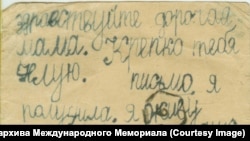 здраствуйте дорогая
мама. Крепко тебя
цлую. писмо я
получила. я живу
архива Международного Мемориала (Courtesy Image)